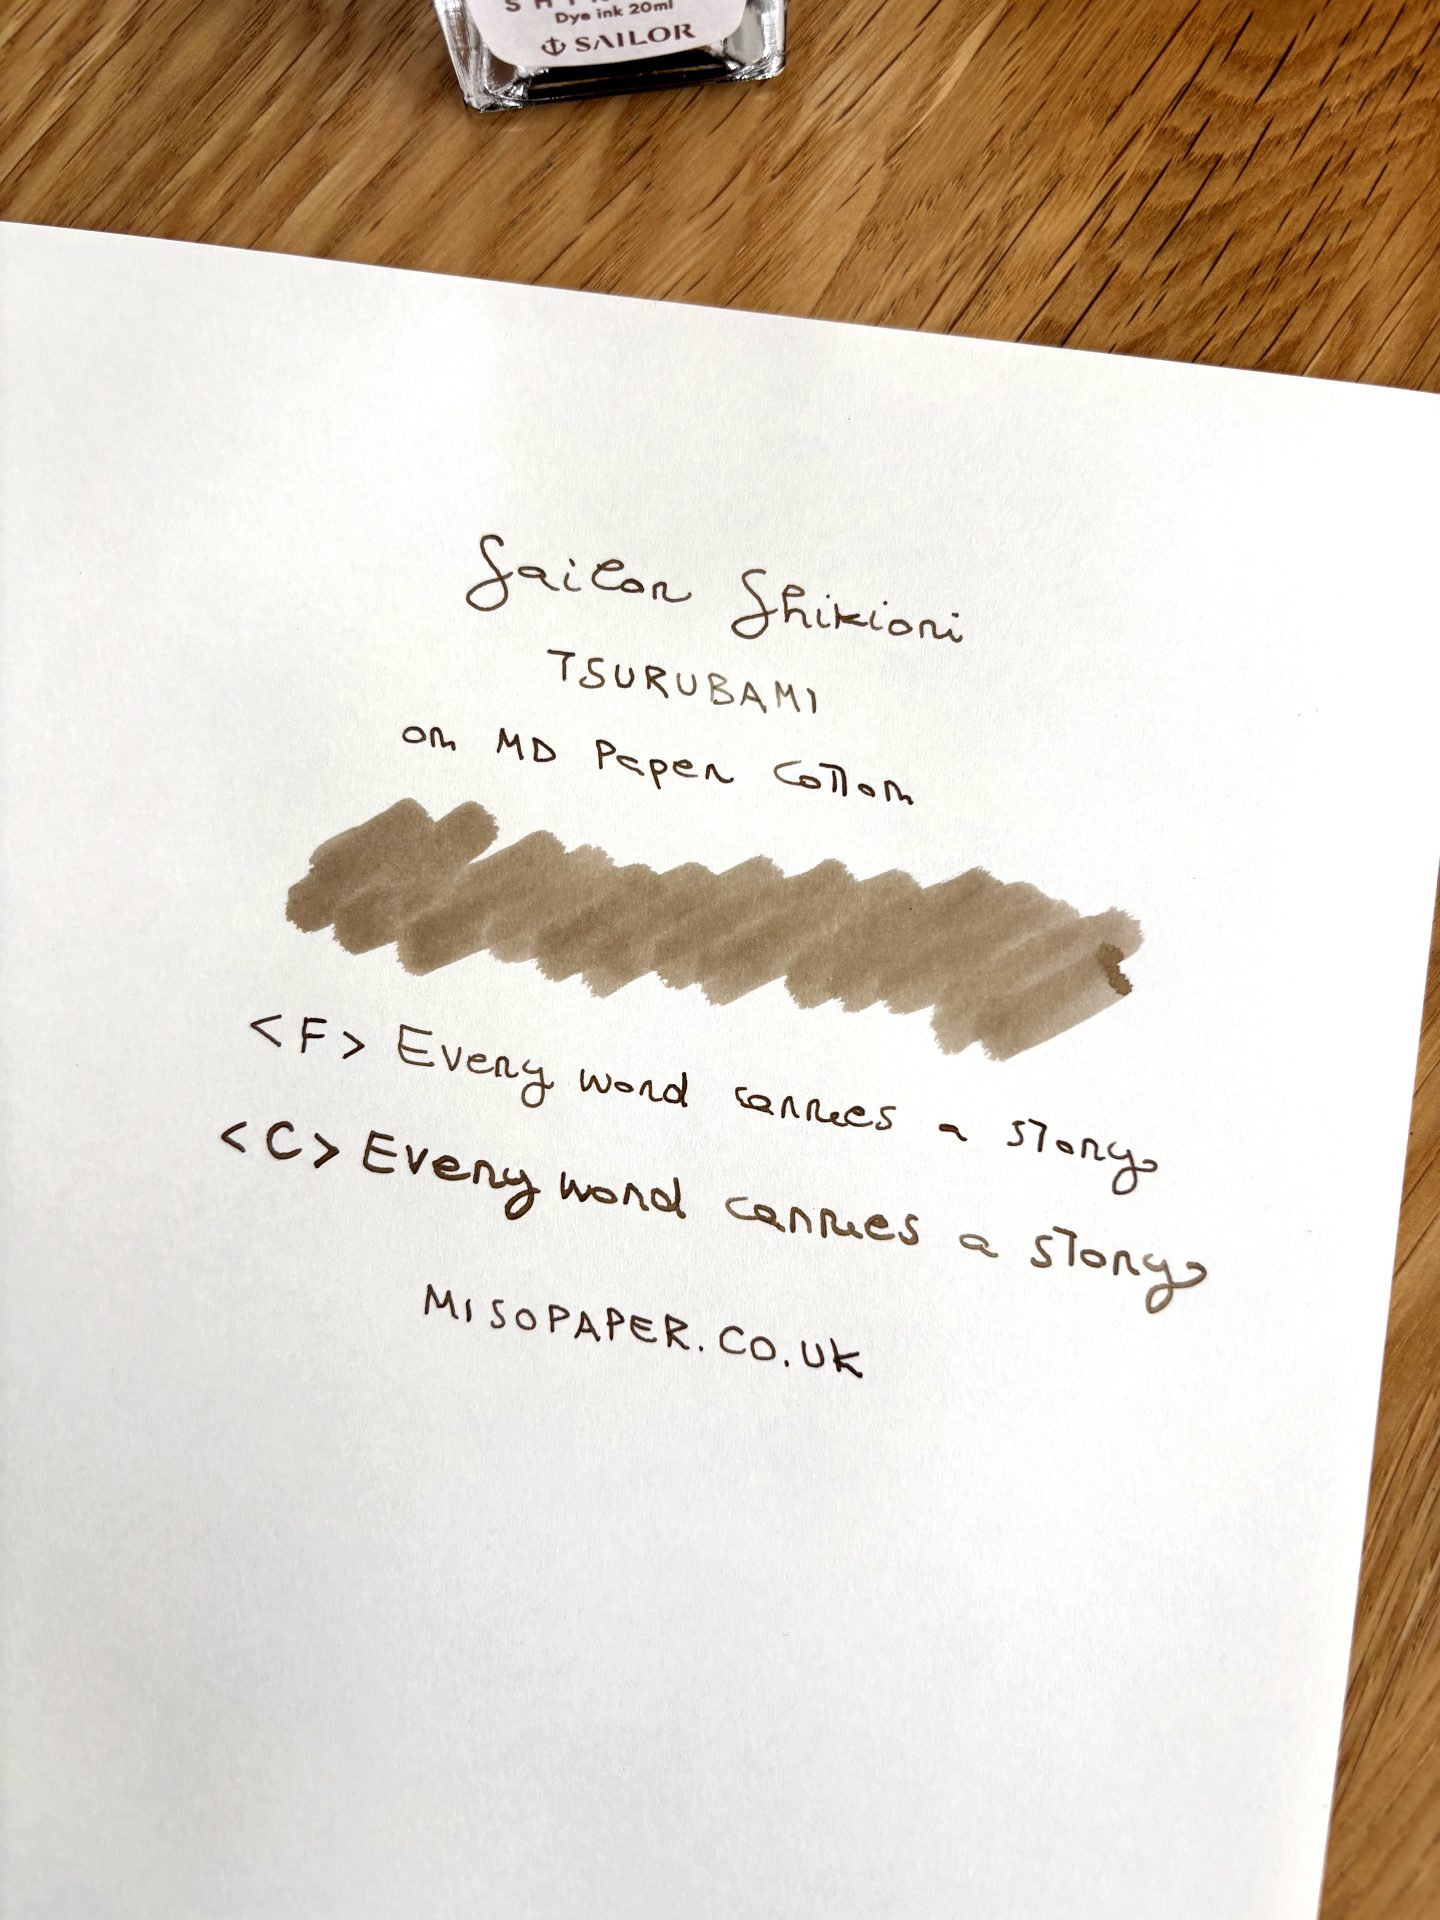 Dye ink 20ml
SAILOR
Sailor Shikiori
TSURUBAMI
on MD Paper Cotton
<F> Every word carries a story
<C> Every word carries a story
MISOPAPER.CO.UK